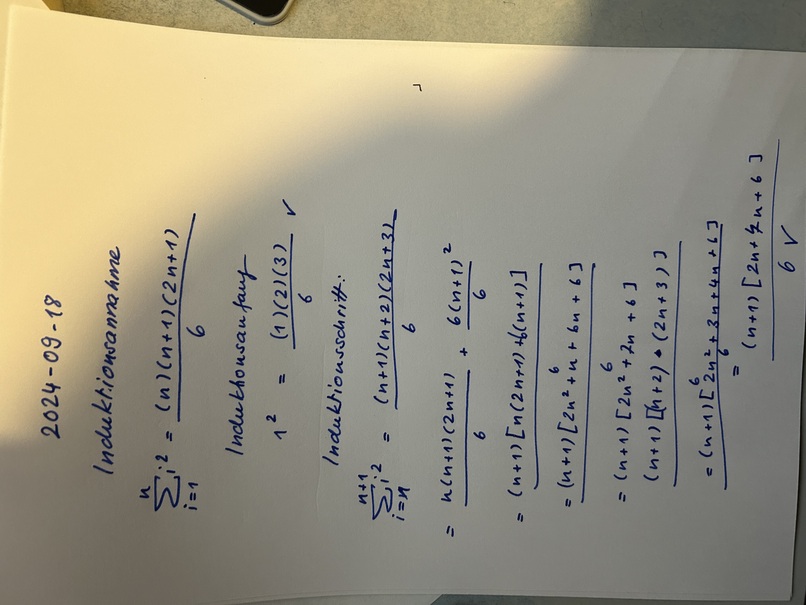 2024-09-18
Induktionsannahme
n
∑ i² = (n)(n+1)(2n+1)
i=1 6
Induktionsanfang
1² = (1)(2)(3) ✓
6
Induktionsschritt:
n+1
∑ i² = (n+1)(n+2)(2n+3)
i=n 6
= n(n+1)(2n+1) + 6(n+1)²
6 6
= (n+1)[n(2n+1)+6(n+1)]
6
= (n+1)[2n²+n+6n+6]
6
= (n+1)[2n²+7n+6]
(n+1)[(n+2)•(2n+3)]
6
= (n+1)[2n²+3n+4n+6]
6
=
(n+1)[2n+7n+6]
6 ✓